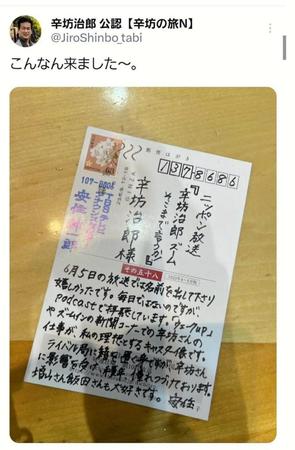 辛坊治郎 公認【辛坊の旅N】
@JiroShinbo_tabi
こんなん来ました〜。
郵便はがき
1378686
ニッポン放送
『辛坊治郎ズーム
そこまで言うか』
辛坊治郎様
その五十八
6月5日の放送では名前を出して下さり
嬉しかったです。毎日ではないのですが、
podcastで拝聴しています。「ウェークUP」
やズームインの新聞コーナーでの辛坊さんの
仕事が、私の理想とするキャスター像です。
ライバル局に籍を置く身ですが、辛坊さん
に影響を受け、積年、憧れつづけております。
増山さん飯田さんも大好きです。 安住